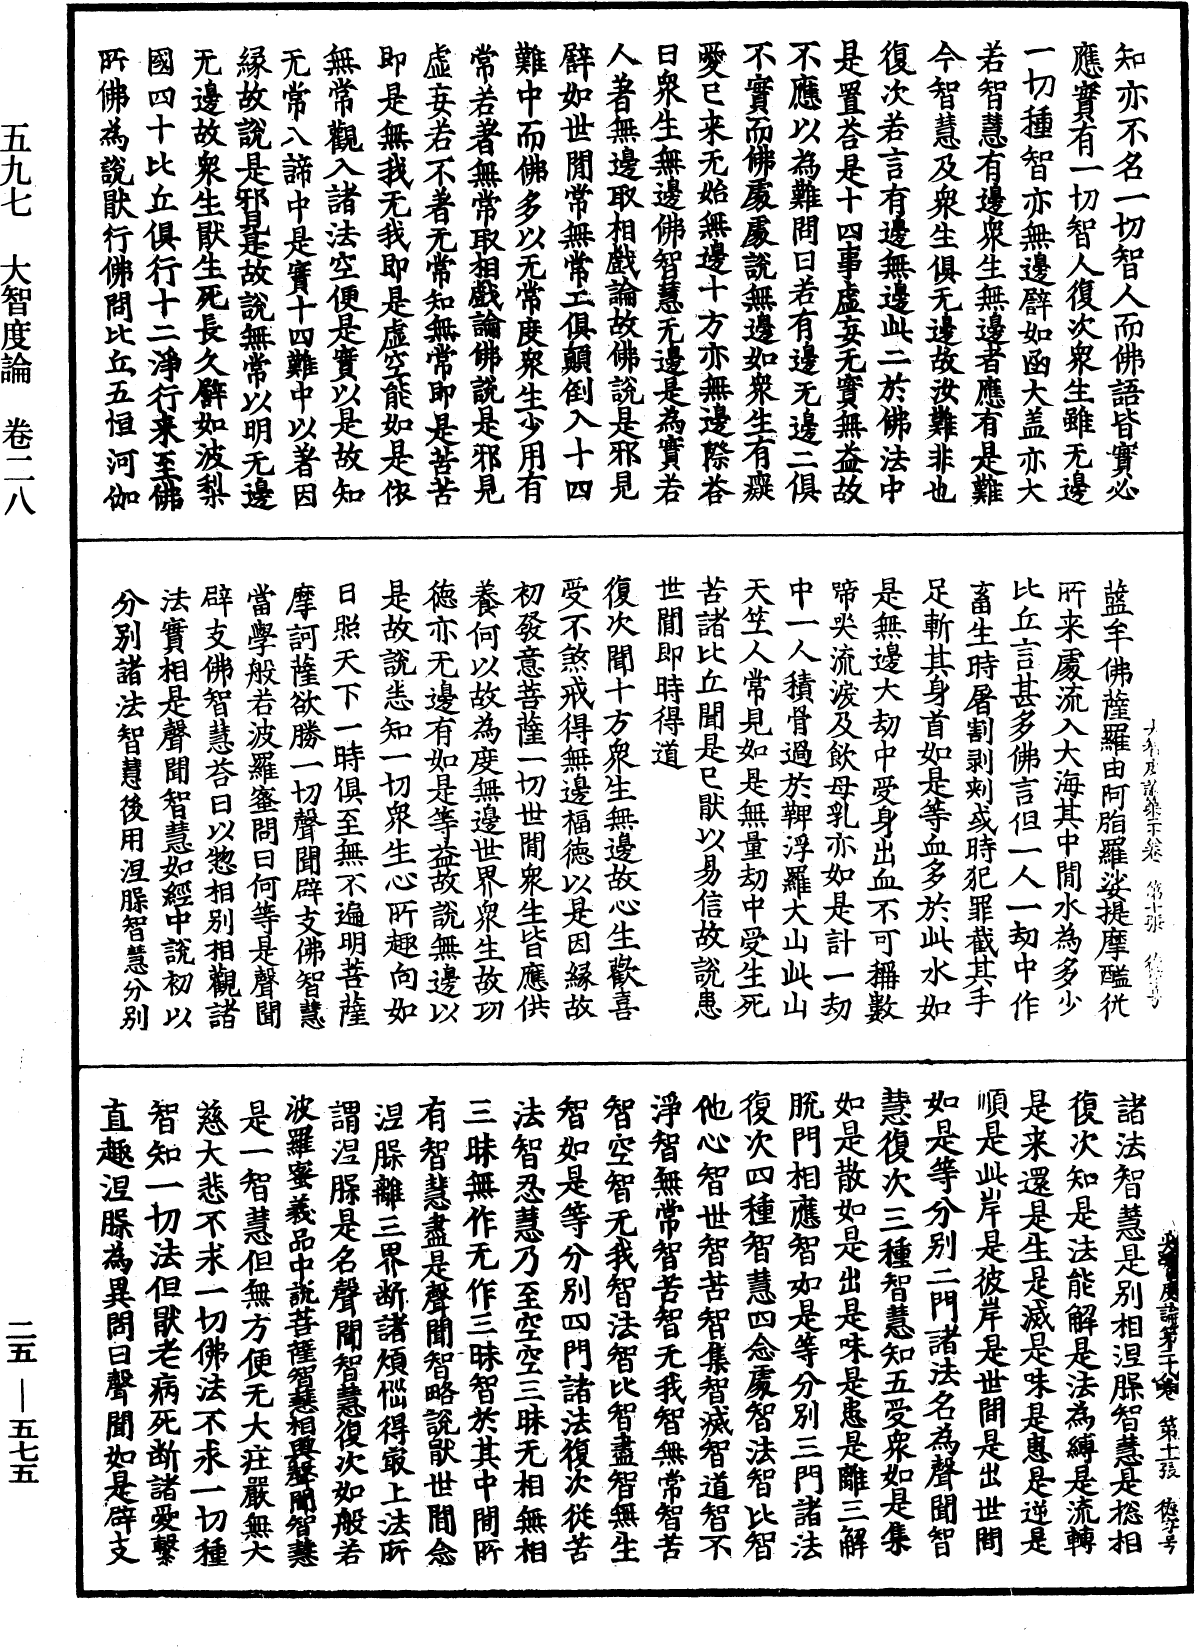 知亦不名一切智人而佛語皆實必
應實有一切智人復次衆生雖无邊
一切種智亦無邊辟如函大盖亦大
若智慧有邊衆生無邊者應有是難
今智慧及衆生俱无邊故汝難非也
復次若言有邊無邊此二於佛法中
是置荅是十四事虛妄无實無益故
不應以為難問曰若有邊无邊二俱
不實而佛處處說無邊如衆生有癡
愛已来无始無邊十方亦無邊際荅
曰衆生無邊佛智慧无邊是為實若
人著無邊取相戲論故佛說是邪見
辟如世間常無常二俱顛倒入十四
難中而佛多以无常度衆生少用有
常若著無常取相戲論佛說是邪見
虛妄若不著无常知無常即是苦苦
即是無我无我即是虛空能如是依
無常觀入諸法空便是實以是故知
无常入諦中是實十四難中以著因
緣故說是邪見是故說無常以明无邊
无邊故衆生猒生死長久辟如波梨
國四十比丘俱行十二淨行来至佛
所佛為說猒行佛問比丘五恒河伽
藍牟佛薩羅由阿脂羅娑提摩醯從
所来處流入大海其中間水為多少
比丘言甚多佛言但一人一劫中作
畜生時屠割剥刺或時犯罪截其手
足斬其身首如是等血多於此水如
是無邊大劫中受身出血不可稱數
啼哭流淚及飲母乳亦如是計一劫
中一人積骨過於鞞浮羅大山此山
天竺人常見如是無量劫中受生死
苦諸比丘聞是已猒以易信故說患
世間即時得道
復次聞十方衆生無邊故心生歡喜
受不煞戒得無邊福德以是因緣故
初發意菩薩一切世間衆生皆應供
養何以故為度無邊世界衆生故功
德亦无邊有如是等益故說無邊以
是故說悉知一切衆生心所趣向如
日照天下一時俱至無不遍明菩薩
摩訶薩欲勝一切聲聞辟支佛智慧
當學般若波羅蜜問曰何等是聲聞
辟支佛智慧荅曰以惣相別相觀諸
法實相是聲聞智慧如經中說初以
分別諸法智慧後用涅槃智慧分別
諸法智慧是別相涅槃智慧是捴相
復次知是法能解是法為縛是流轉
是来還是生是滅是味是患是逆是
順是此岸是彼岸是世間是出世間
如是等分別二門諸法名為聲聞智
慧復次三種智慧知五受衆如是集
如是散如是出是味是患是離三解
脫門相應智如是等分別三門諸法
復次四種智慧四念處智法智比智
他心智世智苦智集智滅智道智不
淨智無常智苦智无我智無常智苦
智空智无我智法智比智盡智無生
智如是等分別四門諸法復次從苦
法智忍慧乃至空空三昧无相無相
三昧無作无作三昧智於其中間所
有智慧盡是聲聞智略說猒世間念
涅槃離三界断諸煩惱得㝡上法所
謂涅槃是名聲聞智慧復次如般若
波羅蜜義品中說菩薩智慧相與聲聞智慧
是一智慧但無方便无大疘嚴無大
慈大悲不求一切佛法不求一切種
智知一切法但猒老病死断諸愛繫
直趣涅槃為異問曰聲聞如是辟支
五九七 大智度論 卷二八
二五 — 五七五